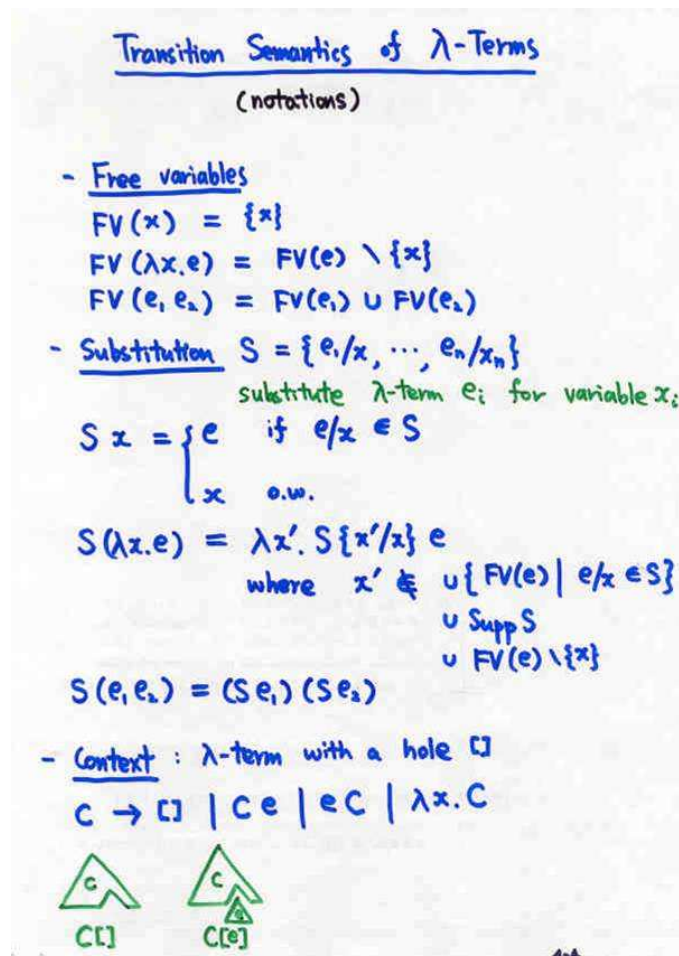 Transition Semantics of λ-Terms
(notations)
- Free variables
FV(x) = {x}
FV(λx.e) = FV(e) \ {x}
FV(e₁ e₂) = FV(e₁) ∪ FV(e₂)
- Substitution S = {e₁/x, ..., eₙ/xₙ}
substitute λ-term eᵢ for variable xᵢ
S x = { e if e/x ∈ S
x o.w.
S(λx.e) = λx'. S{x'/x} e
where x' ∉ ∪{ FV(e) | e/x ∈ S}
∪ Supp S
∪ FV(e) \{x}
S(e₁ e₂) = (S e₁) (S e₂)
- Context : λ-term with a hole []
C → [] | C e | e C | λx. C
C C
e
C[] C[e]